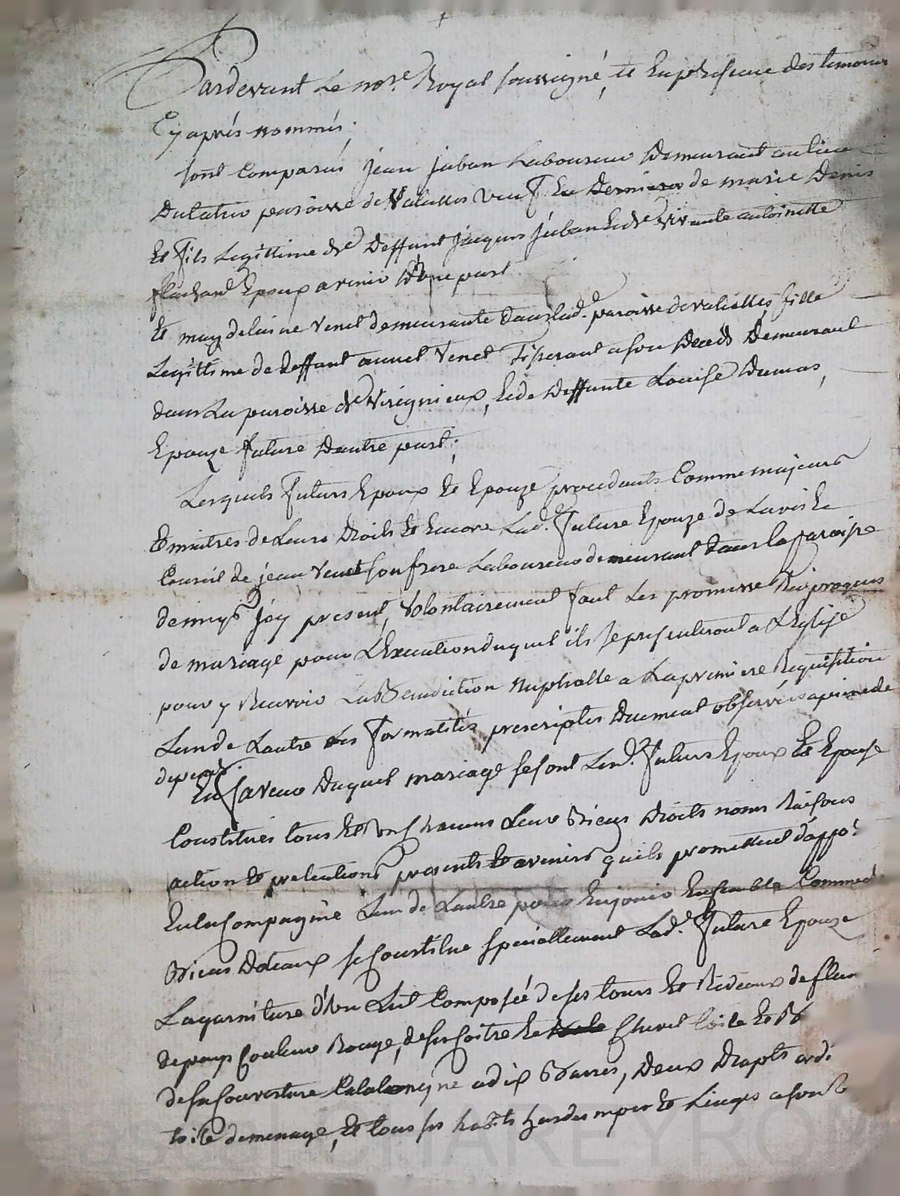 Pardevant Le nore. Royal soussigné, et En présence des temoins
Cy après nommés;
sont Comparus jean juban Laboureur Demeurant au lieu
paroisse de Valeilles veuf En Dernieres de marie Denis
Et fils Legittime de Deffunt jacques juban Et de vivante antoinette
flachard Epoux avenir D'une part
Et magdelaine Venet demeurante dans lad.e paroisse de valeilles fille
Legittime de deffunt annet Venet Tisserant a son Deces Demeurant
dans La paroisse de Virignieux, Et de Deffunte Louise Dumas,
Epouze future Dautre part;
Lesquels futurs Epoux Et Epouze procedants Comme majeurs
Et maitres de Leurs Droits Et Encore Lad.e future Epouze de Lavis Et
Conseil de jean Venet son frere Laboureur demeurant dans la paroisse
de jcy present, Volontairement font Les promesses Reciproques
de mariage pour L'Execution duquel ils se presenteront a L'Eglise
pour y Recevoir La Benediction nuptialle a La premiere Requisition
Lun de Lautre Les formalités prescriptes Duement observées a peine de
depends.
En faveur Duquel mariage se sont Lesd. futurs Epoux Et Epouze
Constitués tous Et Un Chacuns Leurs Biens Droits noms Raisons
action Et pretentions presents Et avenirs quils promettent d'appor
En la Compagnie Lun de Lautre pour En jouir Ensemble Comme de
Biens Dotaux se Constitue speciallement Lad.e future Epouze
La garniture d'Un Lit Composée de ses tours Et Rideaux de
de pays Couleur Rouge, de sa Coitre Et Chevet toile Et
de sa Couverture Catalongne a dix Barres, Deux Draps
toile de menage, Et tous ses habits hardes Et Linges a son
Pascal CHAREYRON